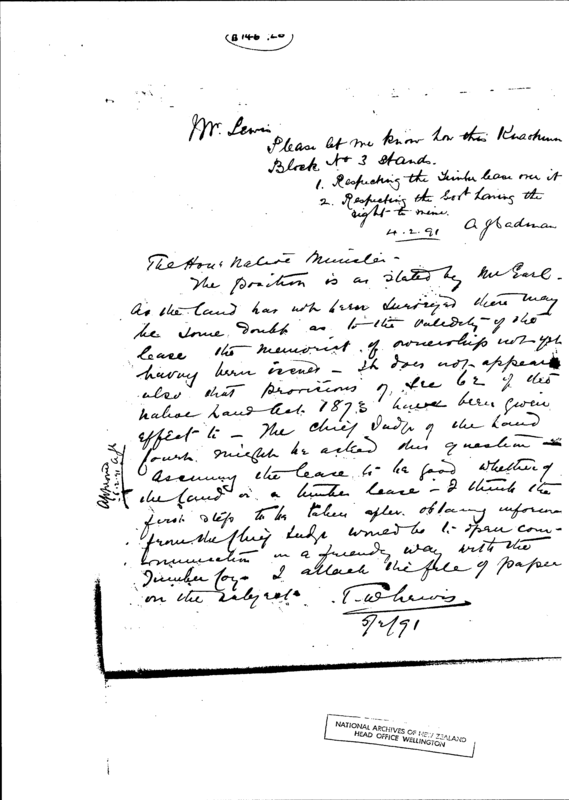 (B 146 .20)
Mr. Lewis
Please let me know how this
Block No 3 stands.
1. Respecting the Timber lease over it
2. Respecting the Govt having the
right to mine.
4.2.91 A J Cadman
The Hon: Native Minister -
The position is as stated by Mr Earl -
As the land has not been surveyed there may
be some doubt as to the validity of the
lease the memorial of ownership not yet
having been issued - It does not appear
also that provisions of Sec 62 of the
Native Land Act 1873 have been given
effect to - The Chief Judge of the Land
Court might be asked this question -
assuming the lease to be good whether of
the land or a timber lease - I think the
first step to be taken after obtaining
from the Chief Judge would be to open com-
munication in a friendly way with the
Timber Coy - I attach the file of paper
on the subject.
T. W. Lewis
5/2/91
Approved
6.2.91 AJC
NATIONAL ARCHIVES OF NEW ZEALAND
HEAD OFFICE WELLINGTON